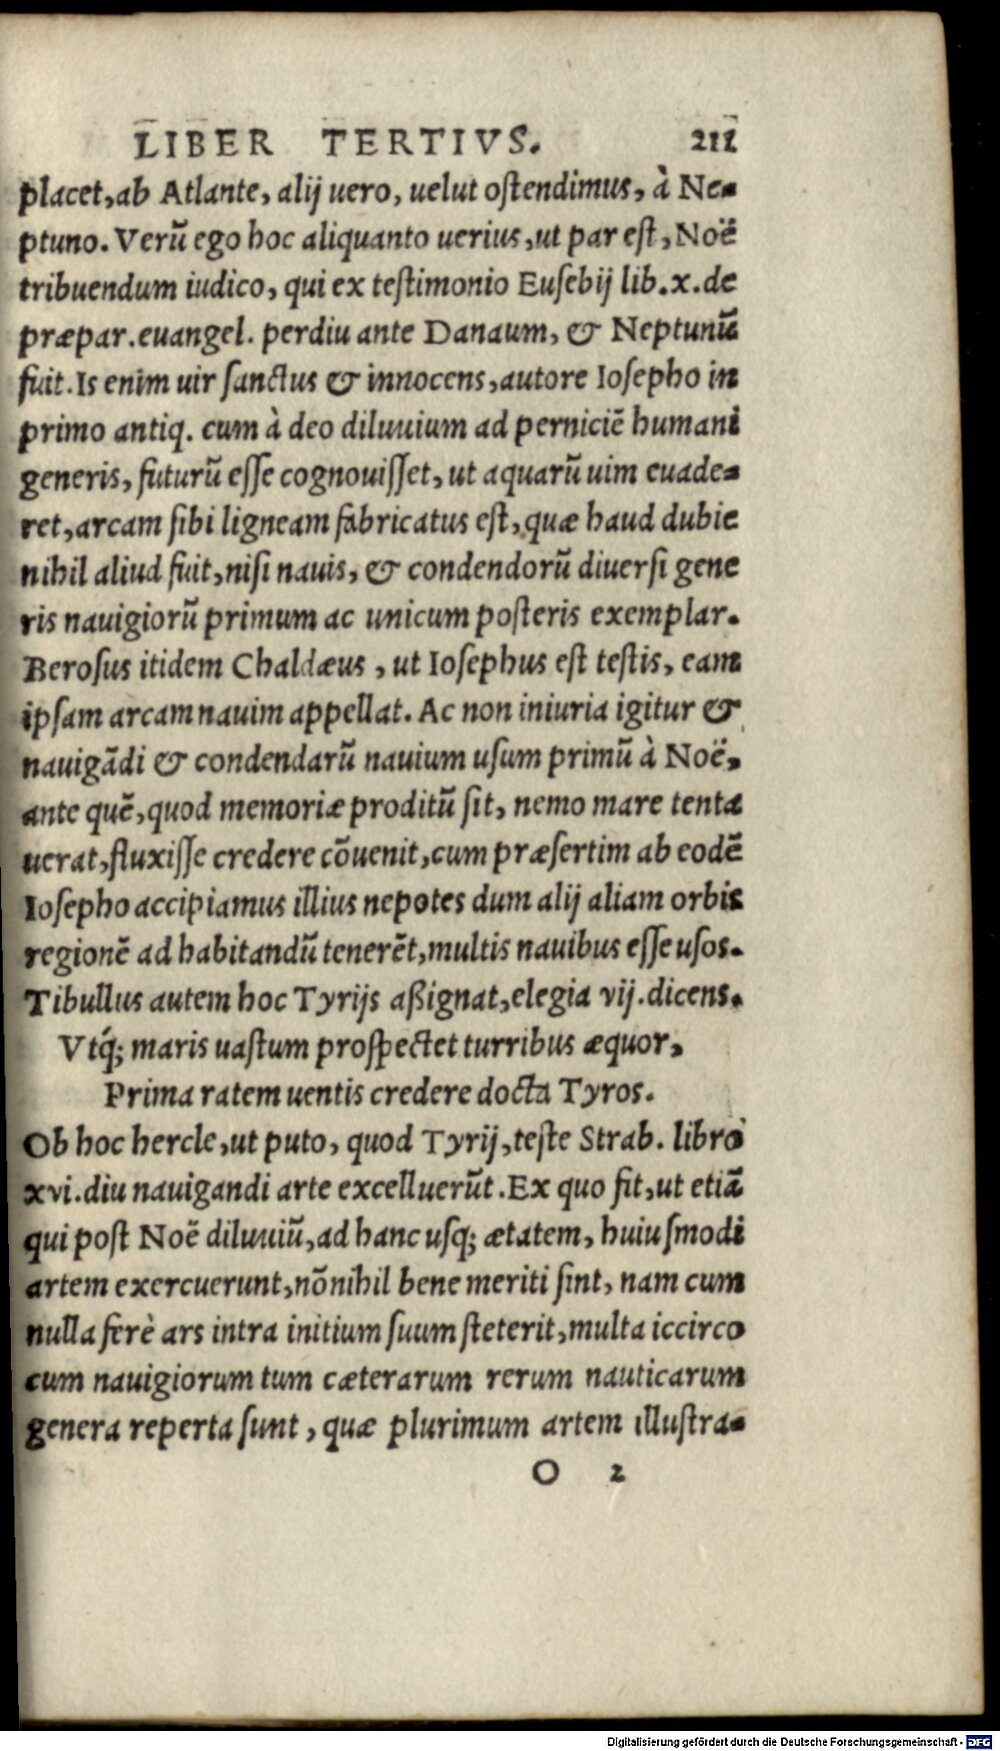 LIBER TERTIVS. 211
placet, ab Atlante, alij uero, uelut ostendimus, à Ne-
ptuno. Verũ ego hoc aliquanto uerius, ut par est, Noë
tribuendum iudico, qui ex testimonio Eusebij lib. x. de
præpar. euangel. perdiu ante Danaum, & Neptunũ
fuit. Is enim uir sanctus & innocens, autore Iosepho in
primo antiq. cum à deo diluuium ad perniciẽ humani
generis, futurũ esse cognouisset, ut aquarũ uim euade-
ret, arcam sibi ligneam fabricatus est, quæ haud dubie
nihil aliud fuit, nisi nauis, & condendorũ diuersi gene
ris nauigiorũ primum ac unicum posteris exemplar.
Berosus itidem Chaldæus, ut Iosephus est testis, eam
ipsam arcam nauim appellat. Ac non iniuria igitur &
nauigãdi & condendarũ nauium usum primũ à Noë,
ante quẽ, quod memoriæ proditũ sit, nemo mare tenta
uerat, fluxisse credere cõuenit, cum præsertim ab eodẽ
Iosepho accipiamus illius nepotes dum alij aliam orbis
regionẽ ad habitandũ tenerẽt, multis nauibus esse usos.
Tibullus autem hoc Tyrijs aßignat, elegia vij. dicens.
Vtq́; maris uastum prospectet turribus æquor,
Prima ratem uentis credere docta Tyros.
Ob hoc hercle, ut puto, quod Tyrij, teste Strab. libro
xvi. diu nauigandi arte excelluerũt. Ex quo fit, ut etiã
qui post Noë diluuiũ, ad hanc usq; ætatem, huiusmodi
artem exercuerunt, nõnihil bene meriti sint, nam cum
nulla ferè ars intra initium suum steterit, multa iccirco
cum nauigiorum tum cæterarum rerum nauticarum
genera reperta sunt, quæ plurimum artem illustra-
O 2
Digitalisierung gefördert durch die Deutsche Forschungsgemeinschaft - DFG